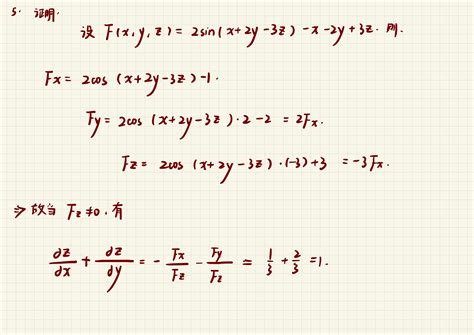 5. 证明.
设 F(x, y, z) = 2sin(x+2y-3z) -x-2y+3z. 则.
Fx = 2cos (x+2y-3z)-1.
Fy = 2cos (x+2y-3z)·2-2 = 2Fx.
Fz = 2cos (x+2y-3z)·(-3)+3 = -3Fx.
⇒ 故当 Fz≠0, 有
∂z/∂x + ∂z/∂y = - Fx/Fz - Fy/Fz = 1/3 + 2/3 =1.